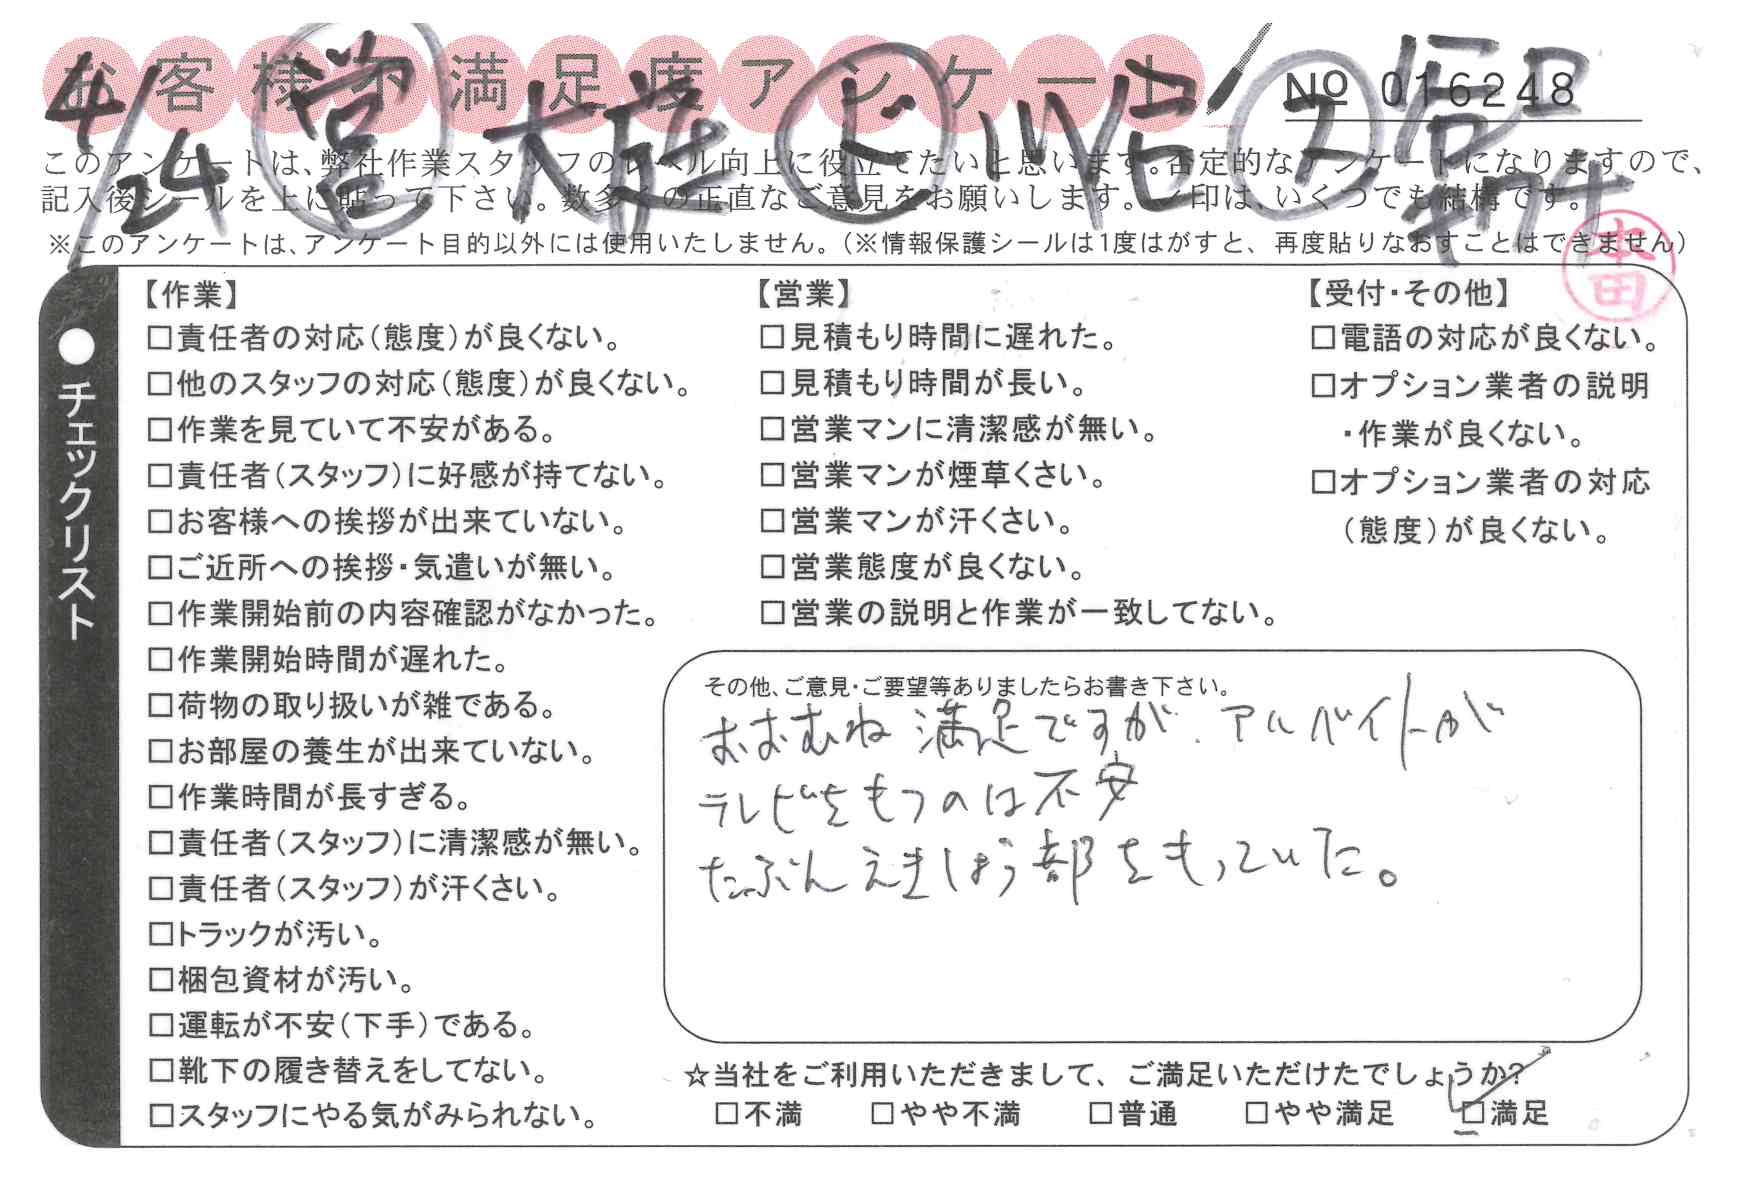 お客様不満足度アンケート
№ 016248
4/24 営 大庭 ド 山岩 ス 福田
このアンケートは、弊社作業スタッフのレベル向上に役立てたいと思います。否定的なアンケートになりますので、
記入後シールを上に貼って下さい。数多くの正直なご意見をお願いします。✓印は、いくつでも結構です。
※このアンケートは、アンケート目的以外には使用いたしません。(※情報保護シールは1度はがすと、再度貼りなおすことはできません)
本田
●チェックリスト
【作業】
□責任者の対応(態度)が良くない。
□他のスタッフの対応(態度)が良くない。
□作業を見ていて不安がある。
□責任者(スタッフ)に好感が持てない。
□お客様への挨拶が出来ていない。
□ご近所への挨拶・気遣いが無い。
□作業開始前の内容確認がなかった。
□作業開始時間が遅れた。
□荷物の取り扱いが雑である。
□お部屋の養生が出来ていない。
□作業時間が長すぎる。
□責任者(スタッフ)に清潔感が無い。
□責任者(スタッフ)が汗くさい。
□トラックが汚い。
□梱包資材が汚い。
□運転が不安(下手)である。
□靴下の履き替えをしてない。
□スタッフにやる気がみられない。
【営業】
□見積もり時間に遅れた。
□見積もり時間が長い。
□営業マンに清潔感が無い。
□営業マンが煙草くさい。
□営業マンが汗くさい。
□営業態度が良くない。
□営業の説明と作業が一致してない。
【受付・その他】
□電話の対応が良くない。
□オプション業者の説明
・作業が良くない。
□オプション業者の対応
(態度)が良くない。
その他、ご意見・ご要望等ありましたらお書き下さい。
おおむね満足ですが、アルバイトが
テレビをもつのは不安
たぶんえきしょう部をもっていた。
☆当社をご利用いただきまして、ご満足いただけたでしょうか?
□不満 □やや不満 □普通 □やや満足 ☑満足